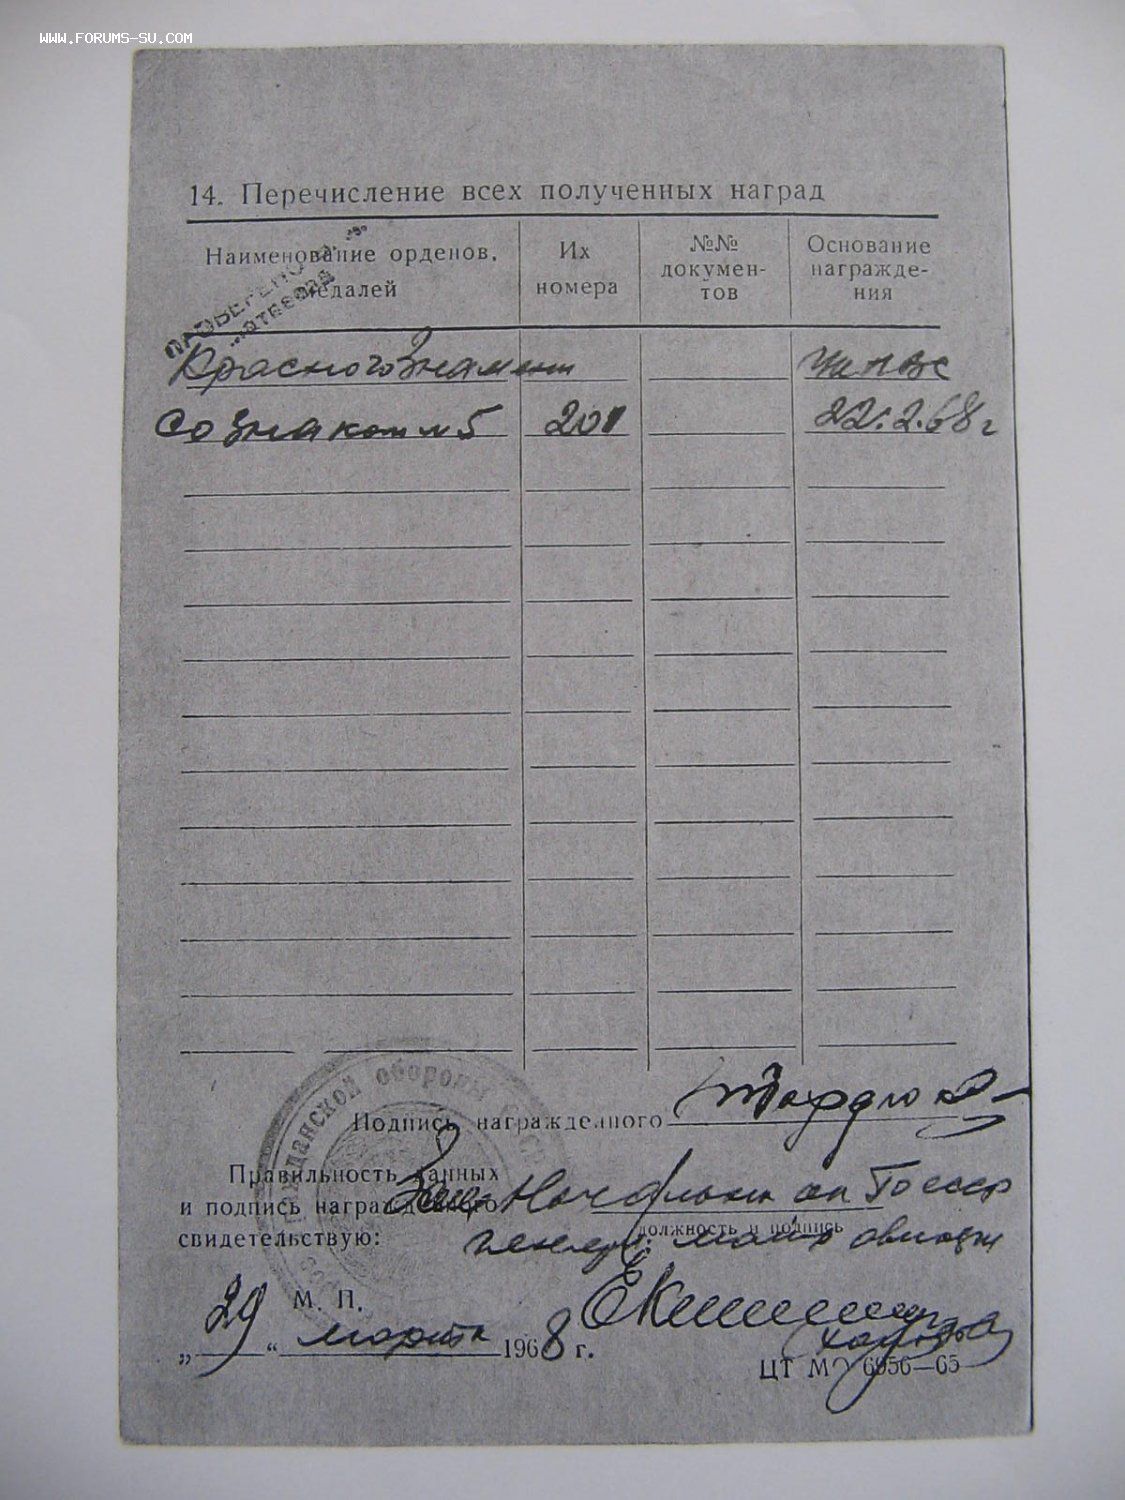 WWW.FORUMS-SU.COM
14. Перечисление всех полученных наград
Наименование орденов, медалей
Их номера
№№ докумен-тов
Основание награжде-ния
ПРОВЕРЕНО
Красного Знамени
Ук ПВС
со знаком № 5
201
22.2.68 г
Подпись награжденного
гражданской обороны
Правильность данных
и подпись награжденного
Зам. Начальника ГО СССР
свидетельствую:
должность и подпись
генерал майор авиации
М. П.
„29“ марта 1968 г.
ЦТ МО 6956—65